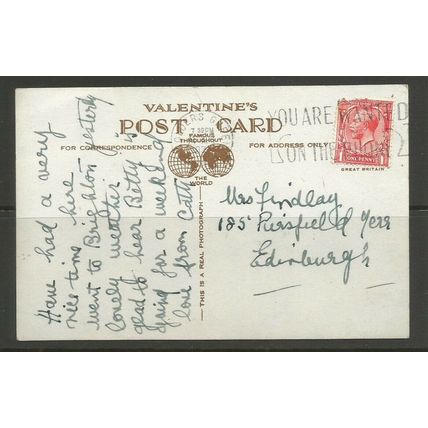 VALENTINE'S
POST CARD
FAMOUS
THROUGHOUT
THE
WORLD
FOR CORRESPONDENCE
FOR ADDRESS ONLY
THIS IS A REAL PHOTOGRAPH
Have had a very
nice time here
went to Brighton yesterdy
lovely weather
glad to hear Betty's
going for a weekend
love from Cath
7.30PM
YOU ARE WANTED
ON THE
ONE PENNY
GREAT BRITAIN
Mrs Findlay
185
Edinburgh